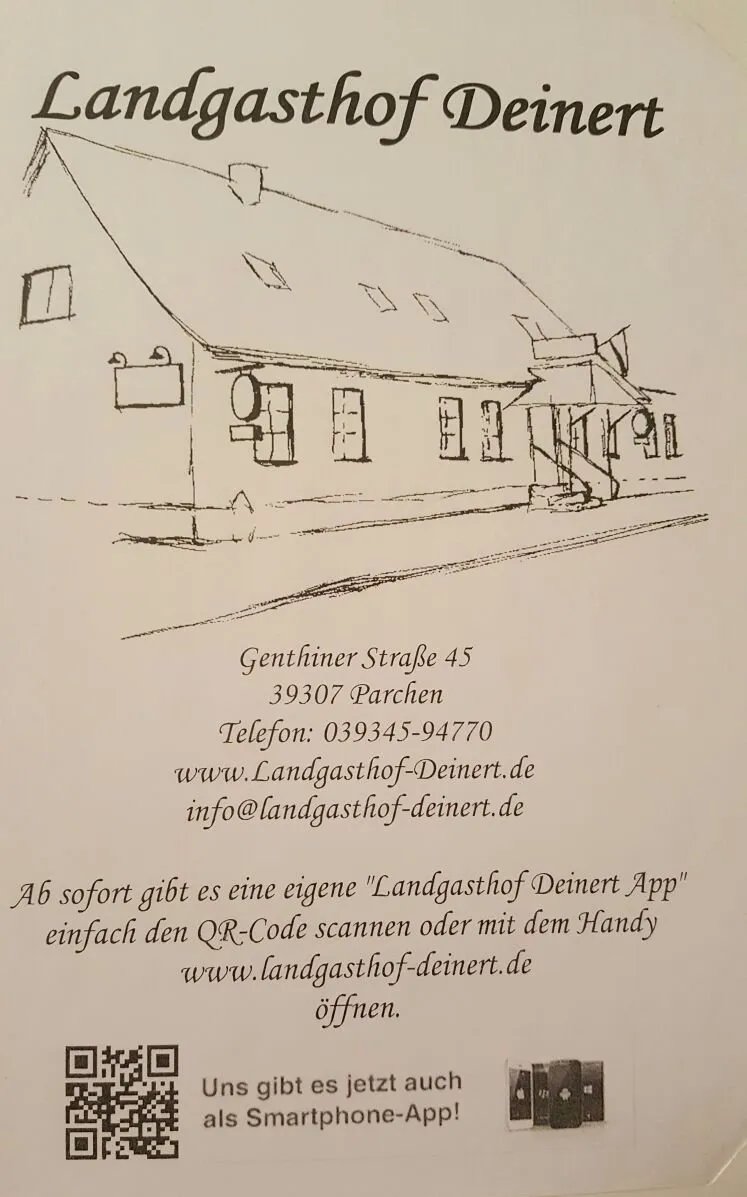 Landgasthof Deinert
Genthiner Straße 45
39307 Parchen
Telefon: 039345-94770
www.Landgasthof-Deinert.de
info@landgasthof-deinert.de
Ab sofort gibt es eine eigene "Landgasthof Deinert App"
einfach den QR-Code scannen oder mit dem Handy
www.landgasthof-deinert.de
öffnen.
Uns gibt es jetzt auch
als Smartphone-App!